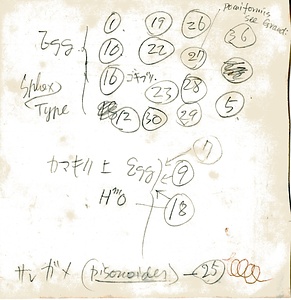 pomiformis
see Grandi
Egg { 1 19 26 36
10 22 27
Sphex 16 ゴキブリ 23 28
Type 12 30 29 5
カマキリ上 Egg 7
9
H 18
サシガメ (pisonoides) 25